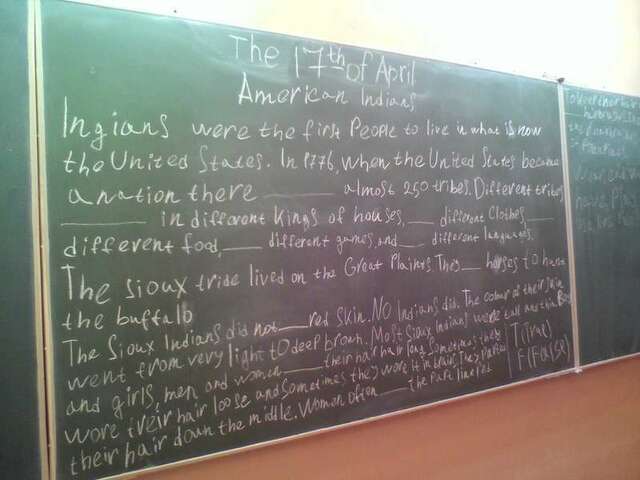 The 17th of April
American Indians
Ingians were the first People to live in what is now
the United States. In 1776, when the United States became
a nation there ______ almost 250 tribes. Different tribes
______ in different Kings of houses, ___ different Clothes ___
different food, ___ different games, and ___ different languages.
The Sioux tride lived on the Great Plaints. They ___ horses to hunt
the buffalo
The Sioux Indians did not ___ red skin. NO Indians did. The colour of their skin
went from very light to deep brown. Most Sioux Indians were tall and thin. Boys
and girls, men and women ___ their hair hair long. Sometimes they
wore their hair loose and sometimes they wore it in braids. They
their hair down the middle. Women often ___ the
T(True)
F(False)